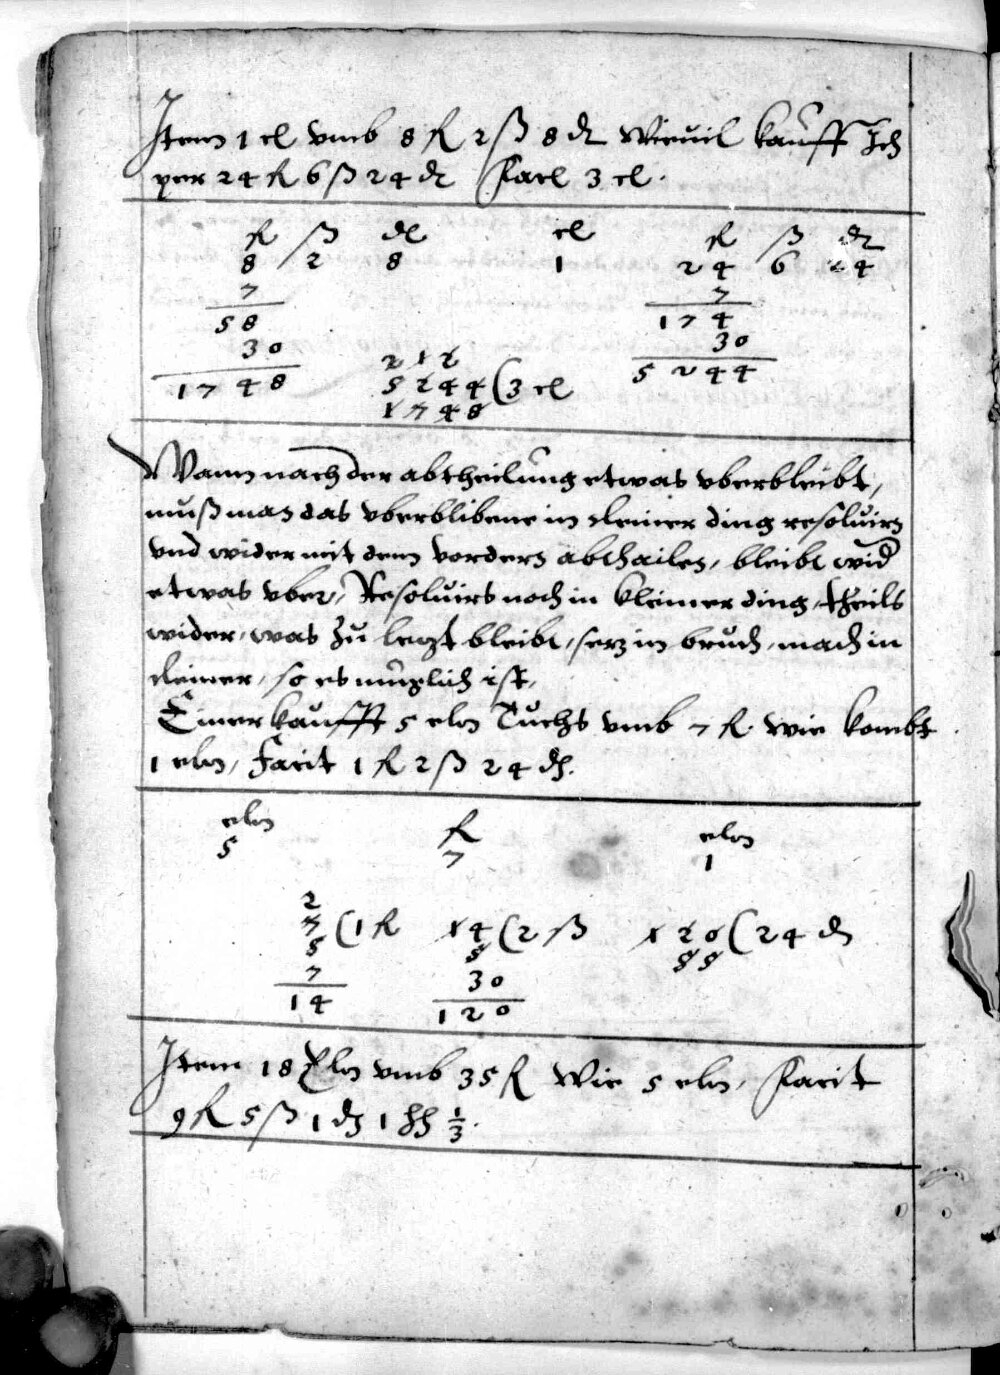 Item 1 el vmb 8 fl 2 ß 8 dl Wieuil kaufft Ich
per 24 fl 6 ß 24 dl facl 3 el.
fl ß dl el fl ß dl
8 2 8 1 24 6 24
7 7
58 174
30 30
1748 5244
212
5244 (3 el
1748
Wann nach der abtheilung etwas vberbleibt,
muß man das vberblibene in cleiner ding resoluirn
vnd wider mit dem vordern abthailen, bleibt wid
etwas vber, Resoluirs noch in kleiner ding, theils
wider, was zu letzt bleibt, setz in bruch, mach in
cleiner, so es muglich ist,
Einer kaufft 5 eln Tuchs vmb 7 fl wie kombt
1 eln, facit 1 fl 2 ß 24 d.
eln fl eln
5 7 1
2
7 (1 fl 14 (2 ß 120 (24 d
5 5 55
7 30
14 120
Item 18 Eln vmb 35 fl wie 5 eln, facit
9 fl 5 ß 1 d 1 hh 1/3.